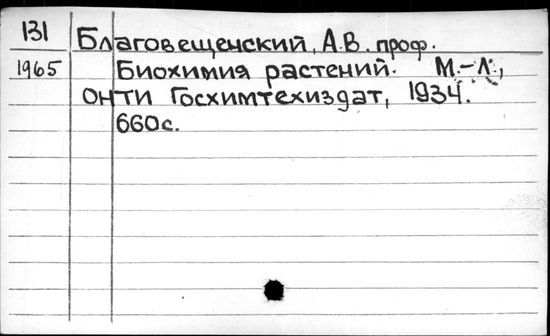 131 Благовещенский, А.В. проф.
1965 Биохимия растений. М.-Л.,
ОНТИ Госхимтехиздат, 1934.
660с.